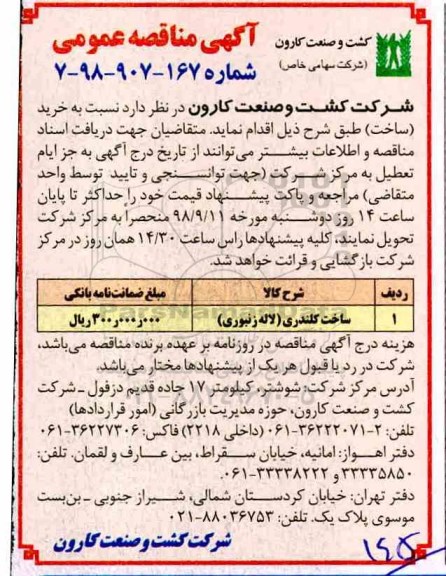 کشت و صنعت کارون
(شرکت سهامی خاص)
آگهی مناقصه عمومی
شماره ۱۶۷-۹۰۷-۹۸-۷
شرکت کشت و صنعت کارون در نظر دارد نسبت به خرید
(ساخت) طبق شرح ذیل اقدام نماید. متقاضیان جهت دریافت اسناد
مناقصه و اطلاعات بیشتر می‌توانند از تاریخ درج آگهی به جز ایام
تعطیل به مرکز شرکت (جهت توانسنجی و تایید توسط واحد
متقاضی) مراجعه و پاکت پیشنهاد قیمت خود را حداکثر تا پایان
ساعت ۱۴ روز دوشنبه مورخه ۹۸/۹/۱۱ منحصرا به مرکز شرکت
تحویل نمایند، کلیه پیشنهادها راس ساعت ۱۴/۳۰ همان روز در مرکز
شرکت بازگشایی و قرائت خواهد شد.
ردیف شرح کالا مبلغ ضمانت‌نامه بانکی
۱ ساخت کلندری (لاله زنبوری) ۳۰۰ر۰۰۰ر۰۰۰ ریال
هزینه درج آگهی مناقصه در روزنامه بر عهده برنده مناقصه می‌باشد،
شرکت در رد یا قبول هر یک از پیشنهادها مختار می‌باشد.
آدرس مرکز شرکت: شوشتر، کیلومتر ۱۷ جاده قدیم دزفول ـ شرکت
کشت و صنعت کارون، حوزه مدیریت بازرگانی (امور قراردادها)
تلفن: ۲-۳۶۲۲۲۰۷۱-۰۶۱ (داخلی ۲۲۱۸) فاکس: ۳۶۲۲۷۳۰۶-۰۶۱
دفتر اهواز: امانیه، خیابان سقراط، بین عارف و لقمان. تلفن:
۳۳۳۳۵۸۵۰ و ۳۳۳۳۸۲۲۲-۰۶۱.
دفتر تهران: خیابان کردستان شمالی، شیراز جنوبی ـ بن‌بست
موسوی پلاک یک. تلفن: ۸۸۰۳۶۷۵۳-۰۲۱
شرکت کشت و صنعت کارون